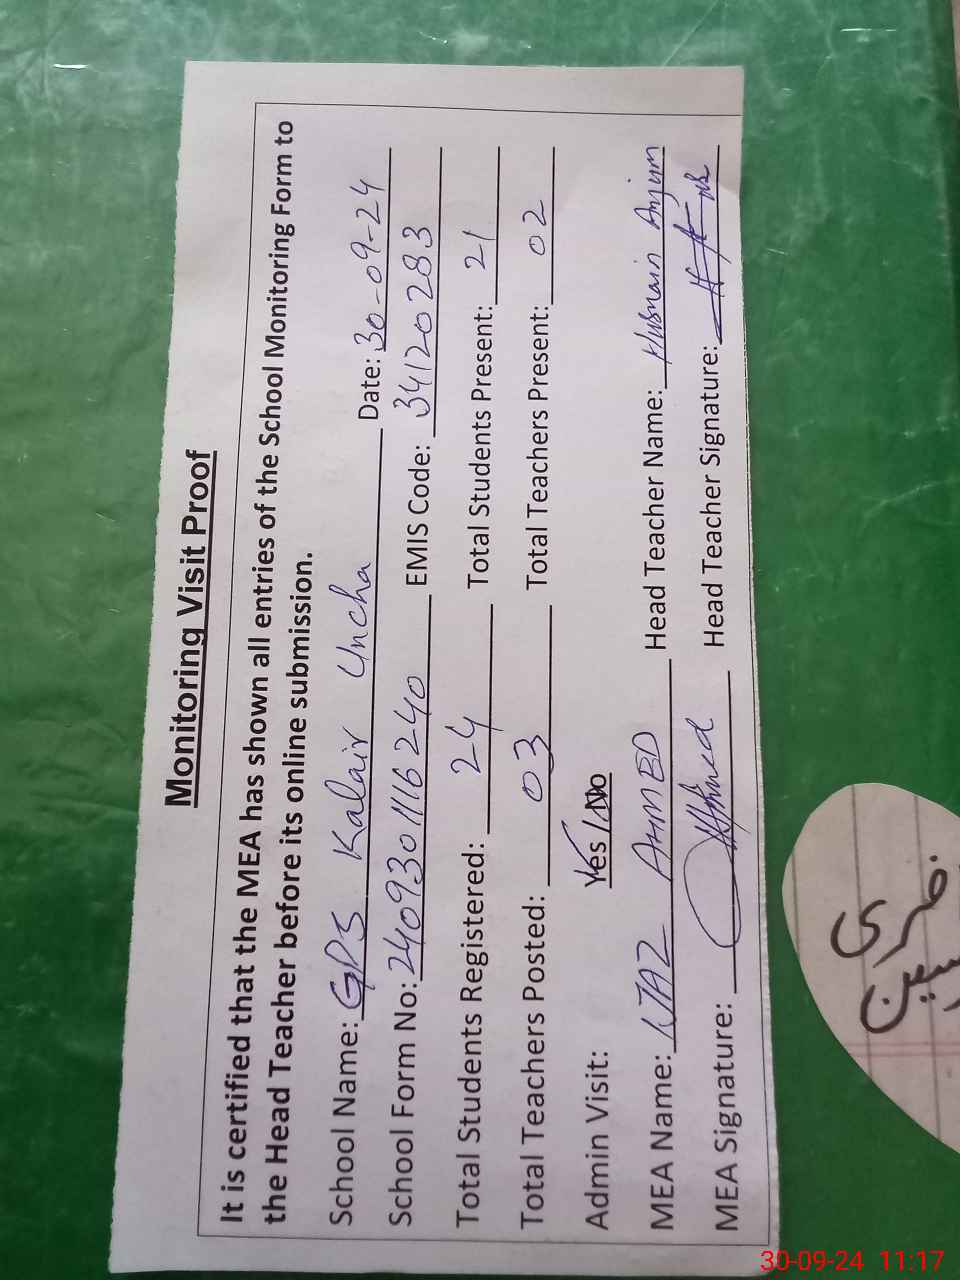 Monitoring Visit Proof
It is certified that the MEA has shown all entries of the School Monitoring Form to
the Head Teacher before its online submission.
School Name: GPS Kalair Uncha Date: 30-09-24
School Form No: 2409301116240 EMIS Code: 34120283
Total Students Registered: 24 Total Students Present: 21
Total Teachers Posted: 03 Total Teachers Present: 02
Admin Visit: Yes/No
MEA Name: IJAZ AHMED Head Teacher Name: Husnain Anjum
MEA Signature: Ahmed Head Teacher Signature:
30-09-24 11:17